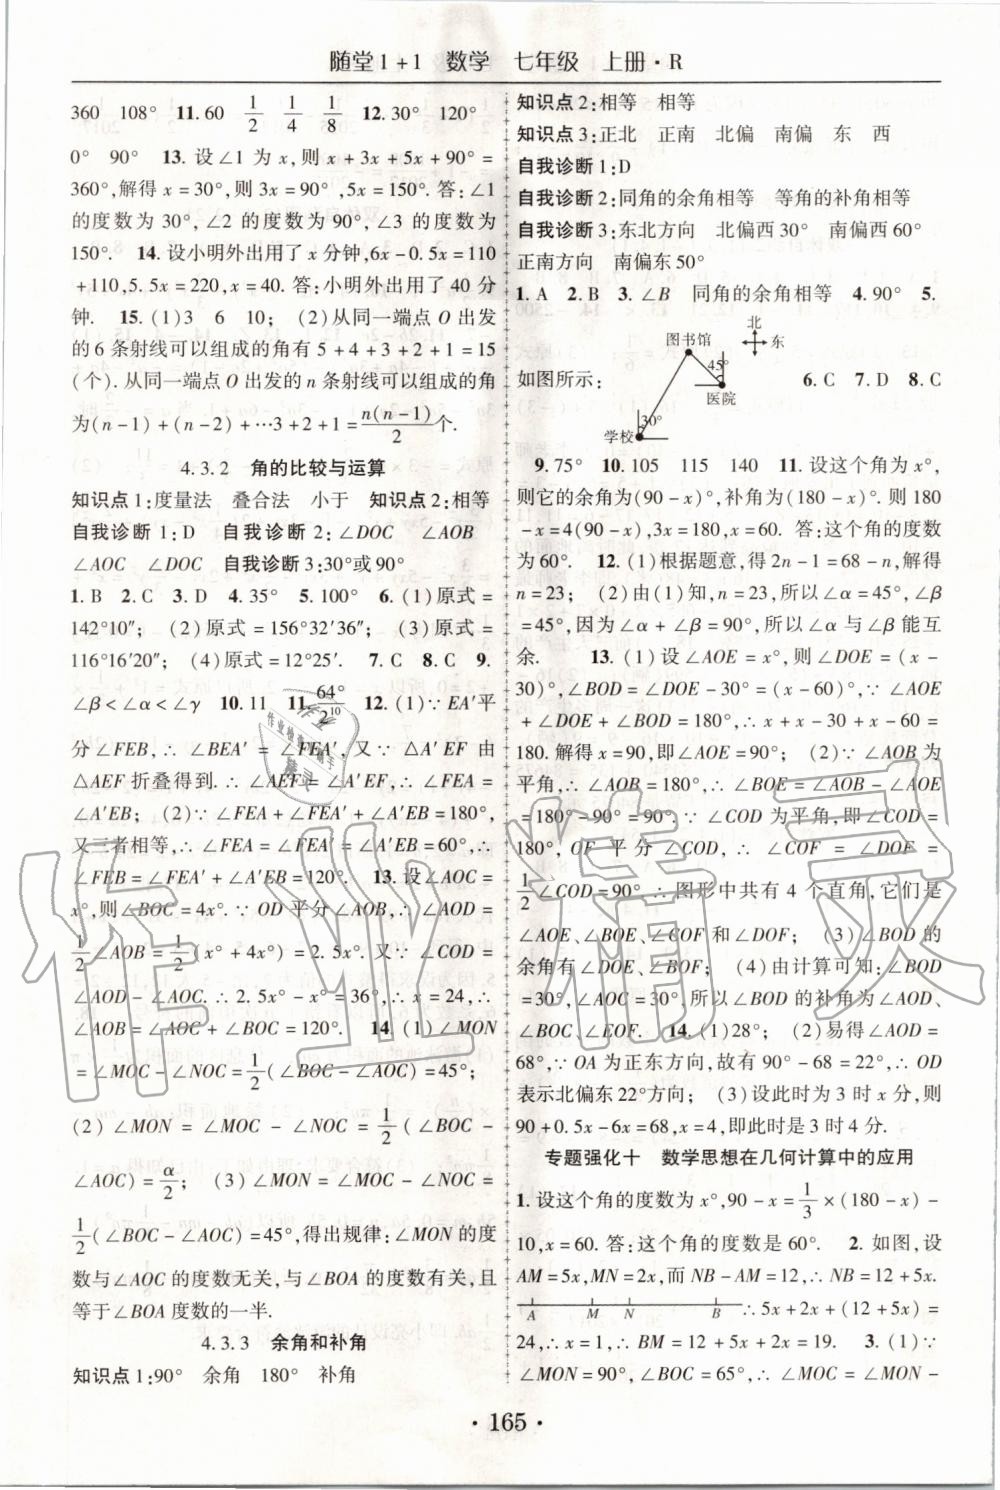 随堂1+1 数学 七年级 上册·R
360 108° 11.60 1/2 1/4 1/8 12.30° 120°
0° 90° 13.设∠1为x,则x+3x+5x+90°=
360°,解得x=30°,则3x=90°,5x=150°.答:∠1
的度数为30°,∠2的度数为90°,∠3的度数为
150°. 14.设小明外出用了x分钟,6x-0.5x=110
+110,5.5x=220,x=40.答:小明外出用了40分
钟. 15.(1)3 6 10; (2)从同一端点O出发
的6条射线可以组成的角有5+4+3+2+1=15
(个).从同一端点O出发的n条射线可以组成的角
为(n-1)+(n-2)+…3+2+1=n(n-1)/2个.
4.3.2 角的比较与运算
知识点1:度量法 叠合法 小于 知识点2:相等
自我诊断1:D 自我诊断2:∠DOC ∠AOB
∠AOC ∠DOC 自我诊断3:30°或90°
1.B 2.C 3.D 4.35° 5.100° 6.(1)原式=
142°10″; (2)原式=156°32′36″; (3)原式=
116°16′20″; (4)原式=12°25′. 7.C 8.C 9.
∠β<∠α<∠γ 10.11 11.64°/2¹⁰ 12.(1)∵EA′平
分∠FEB,∴∠BEA′=∠FEA′,又∵△A′EF由
△AEF折叠得到.∴∠AEF=∠A′EF,∴∠FEA=
∠A′EB; (2)∵∠FEA+∠FEA′+∠A′EB=180°,
又三者相等,∴∠FEA=∠FEA′=∠A′EB=60°,∴
∠FEB=∠FEA′+∠A′EB=120°. 13.设∠AOC=
x°,则∠BOC=4x°.∵OD平分∠AOB,∴∠AOD=
1/2∠AOB=1/2(x°+4x°)=2.5x°.又∵∠COD=
∠AOD-∠AOC.∴2.5x°-x°=36°,∴x=24,∴
∠AOB=∠AOC+∠BOC=120°. 14.(1)∠MON
=∠MOC-∠NOC=1/2(∠BOC-∠AOC)=45°;
(2)∠MON=∠MOC-∠NOC=1/2(∠BOC-
∠AOC)=α/2; (3)∠MON=∠MOC-∠NOC=
1/2(∠BOC-∠AOC)=45°,得出规律:∠MON的度
数与∠AOC的度数无关,与∠BOA的度数有关,且
等于∠BOA度数的一半.
4.3.3 余角和补角
知识点1:90° 余角 180° 补角
知识点2:相等 相等
知识点3:正北 正南 北偏 南偏 东 西
自我诊断1:D
自我诊断2:同角的余角相等 等角的补角相等
自我诊断3:东北方向 北偏西30° 南偏西60°
正南方向 南偏东50°
1.A 2.B 3.∠B 同角的余角相等 4.90° 5.
如图所示: 图书馆 45° 医院 学校 30° 北 东 6.C 7.D 8.C
9.75° 10.105 115 140 11.设这个角为x°,
则它的余角为(90-x)°,补角为(180-x)°.则180
-x=4(90-x),3x=180,x=60.答:这个角的度数
为60°. 12.(1)根据题意,得2n-1=68-n,解得
n=23; (2)由(1)知,n=23,所以∠α=45°,∠β
=45°,因为∠α+∠β=90°,所以∠α与∠β能互
余. 13.(1)设∠AOE=x°,则∠DOE=(x-
30)°,∠BOD=∠DOE-30°=(x-60)°,∵∠AOE
+∠DOE+∠BOD=180°,∴x+x-30+x-60=
180.解得x=90,即∠AOE=90°; (2)∵∠AOB为
平角,∴∠AOB=180°,∴∠BOE=∠AOB-∠AOE=
180°-90°=90°.∵∠COD为平角,即∠COD=
180°,OF平分∠COD,∴∠COF=∠DOF=
1/2∠COD=90°.∴图形中共有4个直角,它们是
∠AOE、∠BOE、∠COF和∠DOF; (3)∠BOD的
余角有∠DOE、∠BOF; (4)由计算可知:∠BOD
=30°,∠AOC=30°,所以∠BOD的补角为∠AOD、
∠BOC、∠EOF. 14.(1)28°; (2)易得∠AOD=
68°,∵OA为正东方向,故有90°-68=22°,∴OD
表示北偏东22°方向; (3)设此时为3时x分,则
90+0.5x-6x=68,x=4,即此时为3时4分.
专题强化十 数学思想在几何计算中的应用
1.设这个角的度数为x°,90-x=1/3×(180-x)-
10,x=60.答:这个角的度数是60°. 2.如图,设
AM=5x,MN=2x,而NB-AM=12,∴NB=12+5x.
A M N B ∴5x+2x+(12+5x)=
24,∴x=1,∴BM=12+5x+2x=19. 3.(1)∵
∠MON=90°,∠BOC=65°,∴∠MOC=∠MON-
·165·